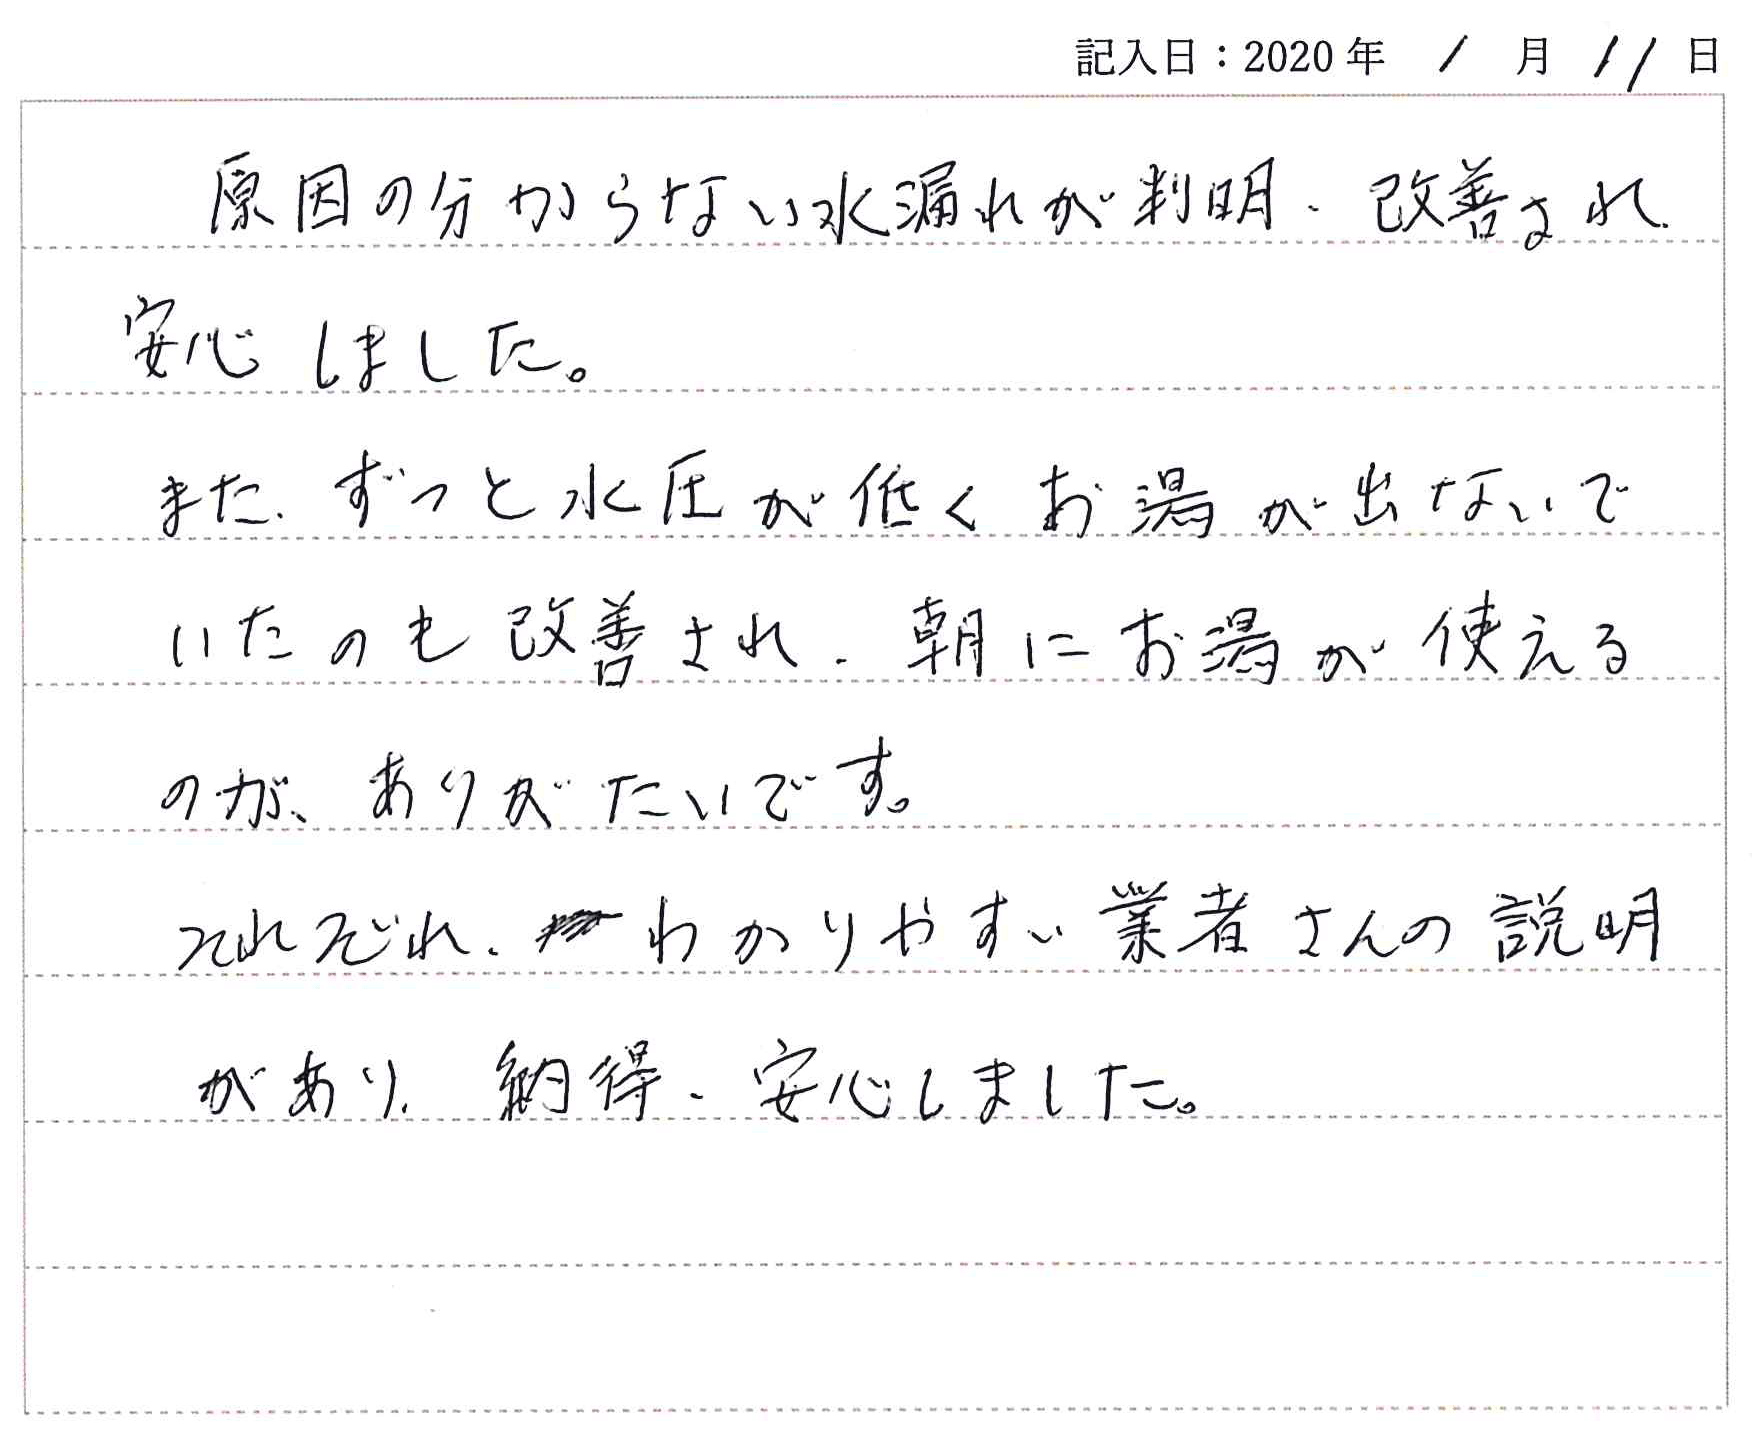 記入日：2020年 1月 11日
原因の分からない水漏れが判明、改善され、
安心しました。
また、ずっと水圧が低くお湯が出ないで
いたのも改善され、朝にお湯が使える
のが、ありがたいです。
それぞれ、わかりやすい業者さんの説明
があり、納得、安心しました。